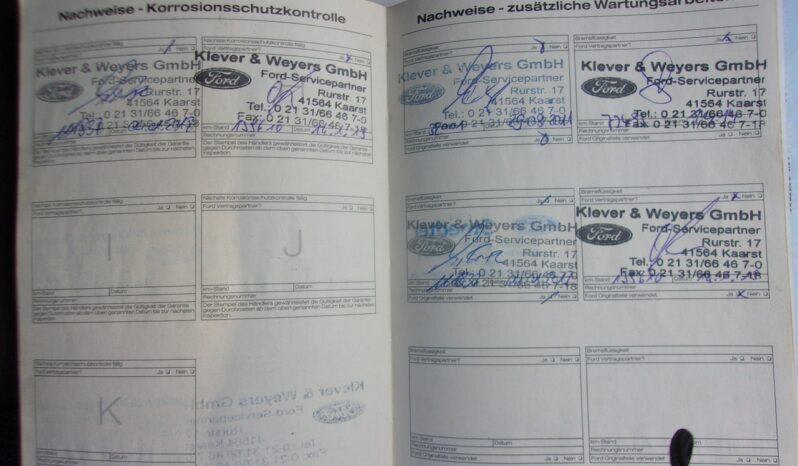 Nachweise - Korrosionsschutzkontrolle
Nächste Korrosionsschutzkontrolle fällig
Ford Vertragspartner? Ja Nein
Klever & Weyers GmbH
Ford
Ford-Servicepartner
Rurstr. 17
41564 Kaarst
Tel.: 0 21 31/66 46 7-0
km-Stand
Rechnungsnummer
Der Stempel des Händlers gewährleistet die Gültigkeit der Garantie
gegen Durchrosten ab dem oben genannten Datum bis zur nächsten
Inspektion.
Nächste Korrosionsschutzkontrolle fällig
Ford Vertragspartner? Ja Nein
Klever & Weyers GmbH
Ford
Ford-Servicepartner
Rurstr. 17
41564 Kaarst
Tel.: 0 21 31/66 46 7-0
Fax: 0 21 31/66 46 7-18
km-Stand 135610 Datum
Rechnungsnummer
Der Stempel des Händlers gewährleistet die Gültigkeit der Garantie
gegen Durchrosten ab dem oben genannten Datum bis zur nächsten
Inspektion.
Nächste Korrosionsschutzkontrolle fällig
Ford Vertragspartner? Ja Nein
I
km-Stand Datum
Rechnungsnummer
Der Stempel des Händlers gewährleistet die Gültigkeit der Garantie
gegen Durchrosten ab dem oben genannten Datum bis zur nächsten
Inspektion.
Nächste Korrosionsschutzkontrolle fällig
Ford Vertragspartner? Ja Nein
J
km-Stand Datum
Rechnungsnummer
Der Stempel des Händlers gewährleistet die Gültigkeit der Garantie
gegen Durchrosten ab dem oben genannten Datum bis zur nächsten
Inspektion.
Nächste Korrosionsschutzkontrolle fällig
Ford Vertragspartner? Ja Nein
K
Nachweise - zusätzliche Wartungsarbeiten
Bremsflüssigkeit
Ford Vertragspartner? Ja Nein
Klever & Weyers GmbH
Ford
Ford-Servicepartner
Rurstr. 17
41564 Kaarst
Tel.: 0 21 31/66 46 7-0
Rechnungsnummer
Ford Originalteile verwendet Ja Nein
Bremsflüssigkeit
Ford Vertragspartner? Ja Nein
Klever & Weyers GmbH
Ford
Ford-Servicepartner
Rurstr. 17
41564 Kaarst
Tel.: 0 21 31/66 46 7-0
Fax: 0 21 31/66 46 7-18
Rechnungsnummer
Ford Originalteile verwendet Ja Nein
Bremsflüssigkeit
Ford Vertragspartner? Ja Nein
Klever & Weyers GmbH
Ford
Ford-Servicepartner
Rurstr. 17
41564 Kaarst
Tel.: 0 21 31/66 46 7-0
Fax: 0 21 31/66 46 7-18
Rechnungsnummer
Ford Originalteile verwendet Ja Nein
Bremsflüssigkeit
Ford Vertragspartner? Ja Nein
Klever & Weyers GmbH
Ford
Ford-Servicepartner
Rurstr. 17
41564 Kaarst
Tel.: 0 21 31/66 46 7-0
Fax: 0 21 31/66 46 7-18
135610
Rechnungsnummer
Ford Originalteile verwendet Ja Nein
Bremsflüssigkeit
Ford Vertragspartner? Ja Nein
km-Stand Datum
Rechnungsnummer
Ford Originalteile verwendet Ja Nein
Bremsflüssigkeit
Ford Vertragspartner? Ja Nein
km-Stand Datum
Rechnungsnummer
Ford Originalteile verwendet Ja Nein